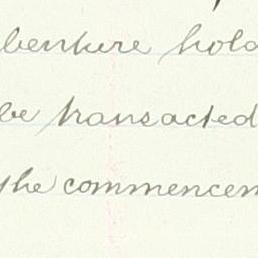 benture hold
be transacted
the commencem